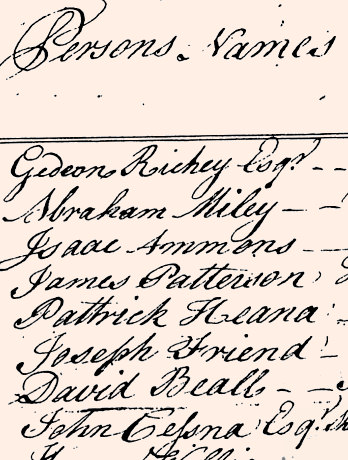 Persons Names
Gedeon Richey Esqr. - -
Abraham Miley - -
Isaac Ammons - -
James Patterson
Pattrick Heana
Joseph Friend
David Beall - -
John Cessna Esqr.